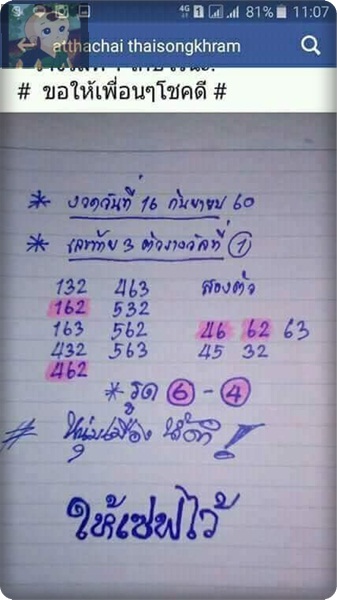 4G 1 81% 11:07
atthachai thaisongkhram
# ขอให้เพื่อนๆโชคดี #
* งวดวันที่ 16 กันยายน 60
* เลขท้าย 3 ตัวรางวัลที่ 1
132 463 สองตัว
162 532
163 562 46 62 63
432 563 45 32
462
* รูด 6 - 4
# หนุ่มเมือง
ให้เซฟไว้